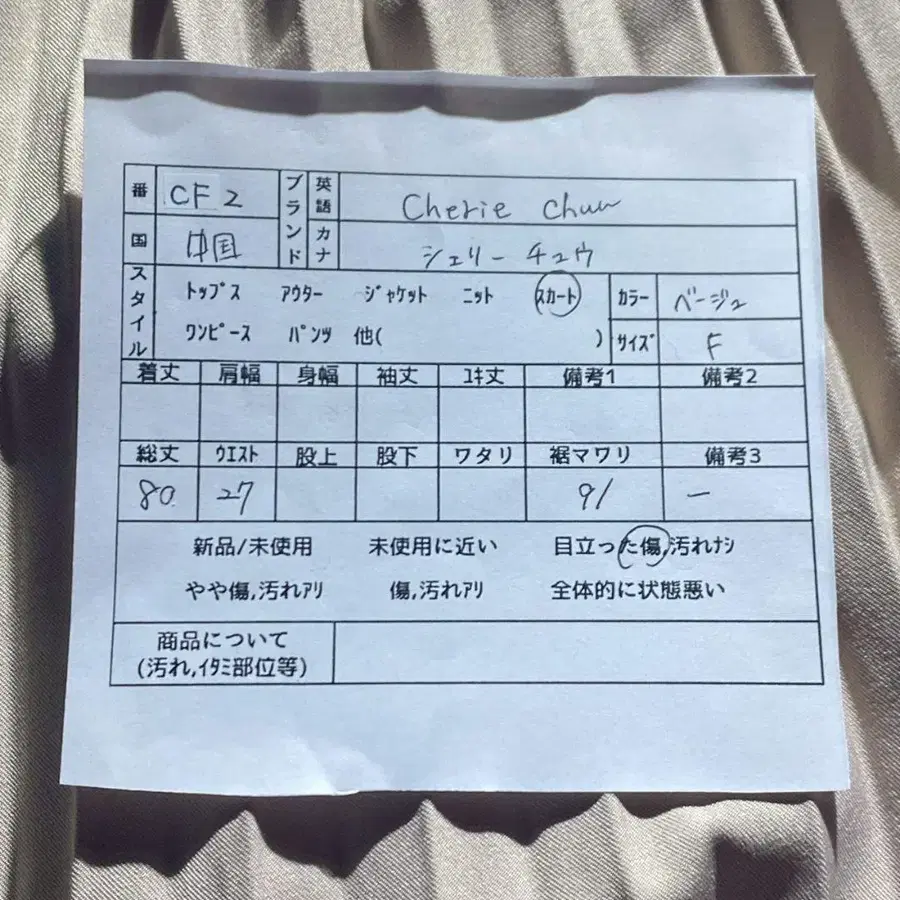 番 CF2 ブランド 英語 Cherie Chuu
国 中国 カナ シェリーチュウ
スタイル トップス アウター ジャケット ニット スカート カラー ベージュ
ワンピース パンツ 他( ) サイズ F
着丈 肩幅 身幅 袖丈 ユキ丈 備考1 備考2
総丈 ウエスト 股上 股下 ワタリ 裾マワリ 備考3
80 27 91 ー
新品/未使用 未使用に近い 目立った傷,汚れナシ
やや傷,汚れアリ 傷,汚れアリ 全体的に状態悪い
商品について
(汚れ,イタミ部位等)